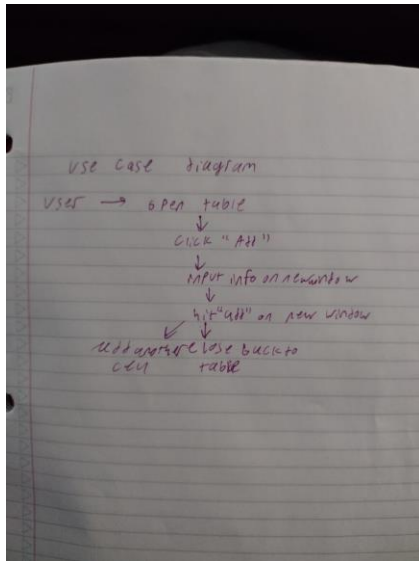 Use case diagram
User → open table
↓
Click "Add"
↓
input info on new window
↓
hit "add" on new window
↙ ↓
add another close back to
cell table